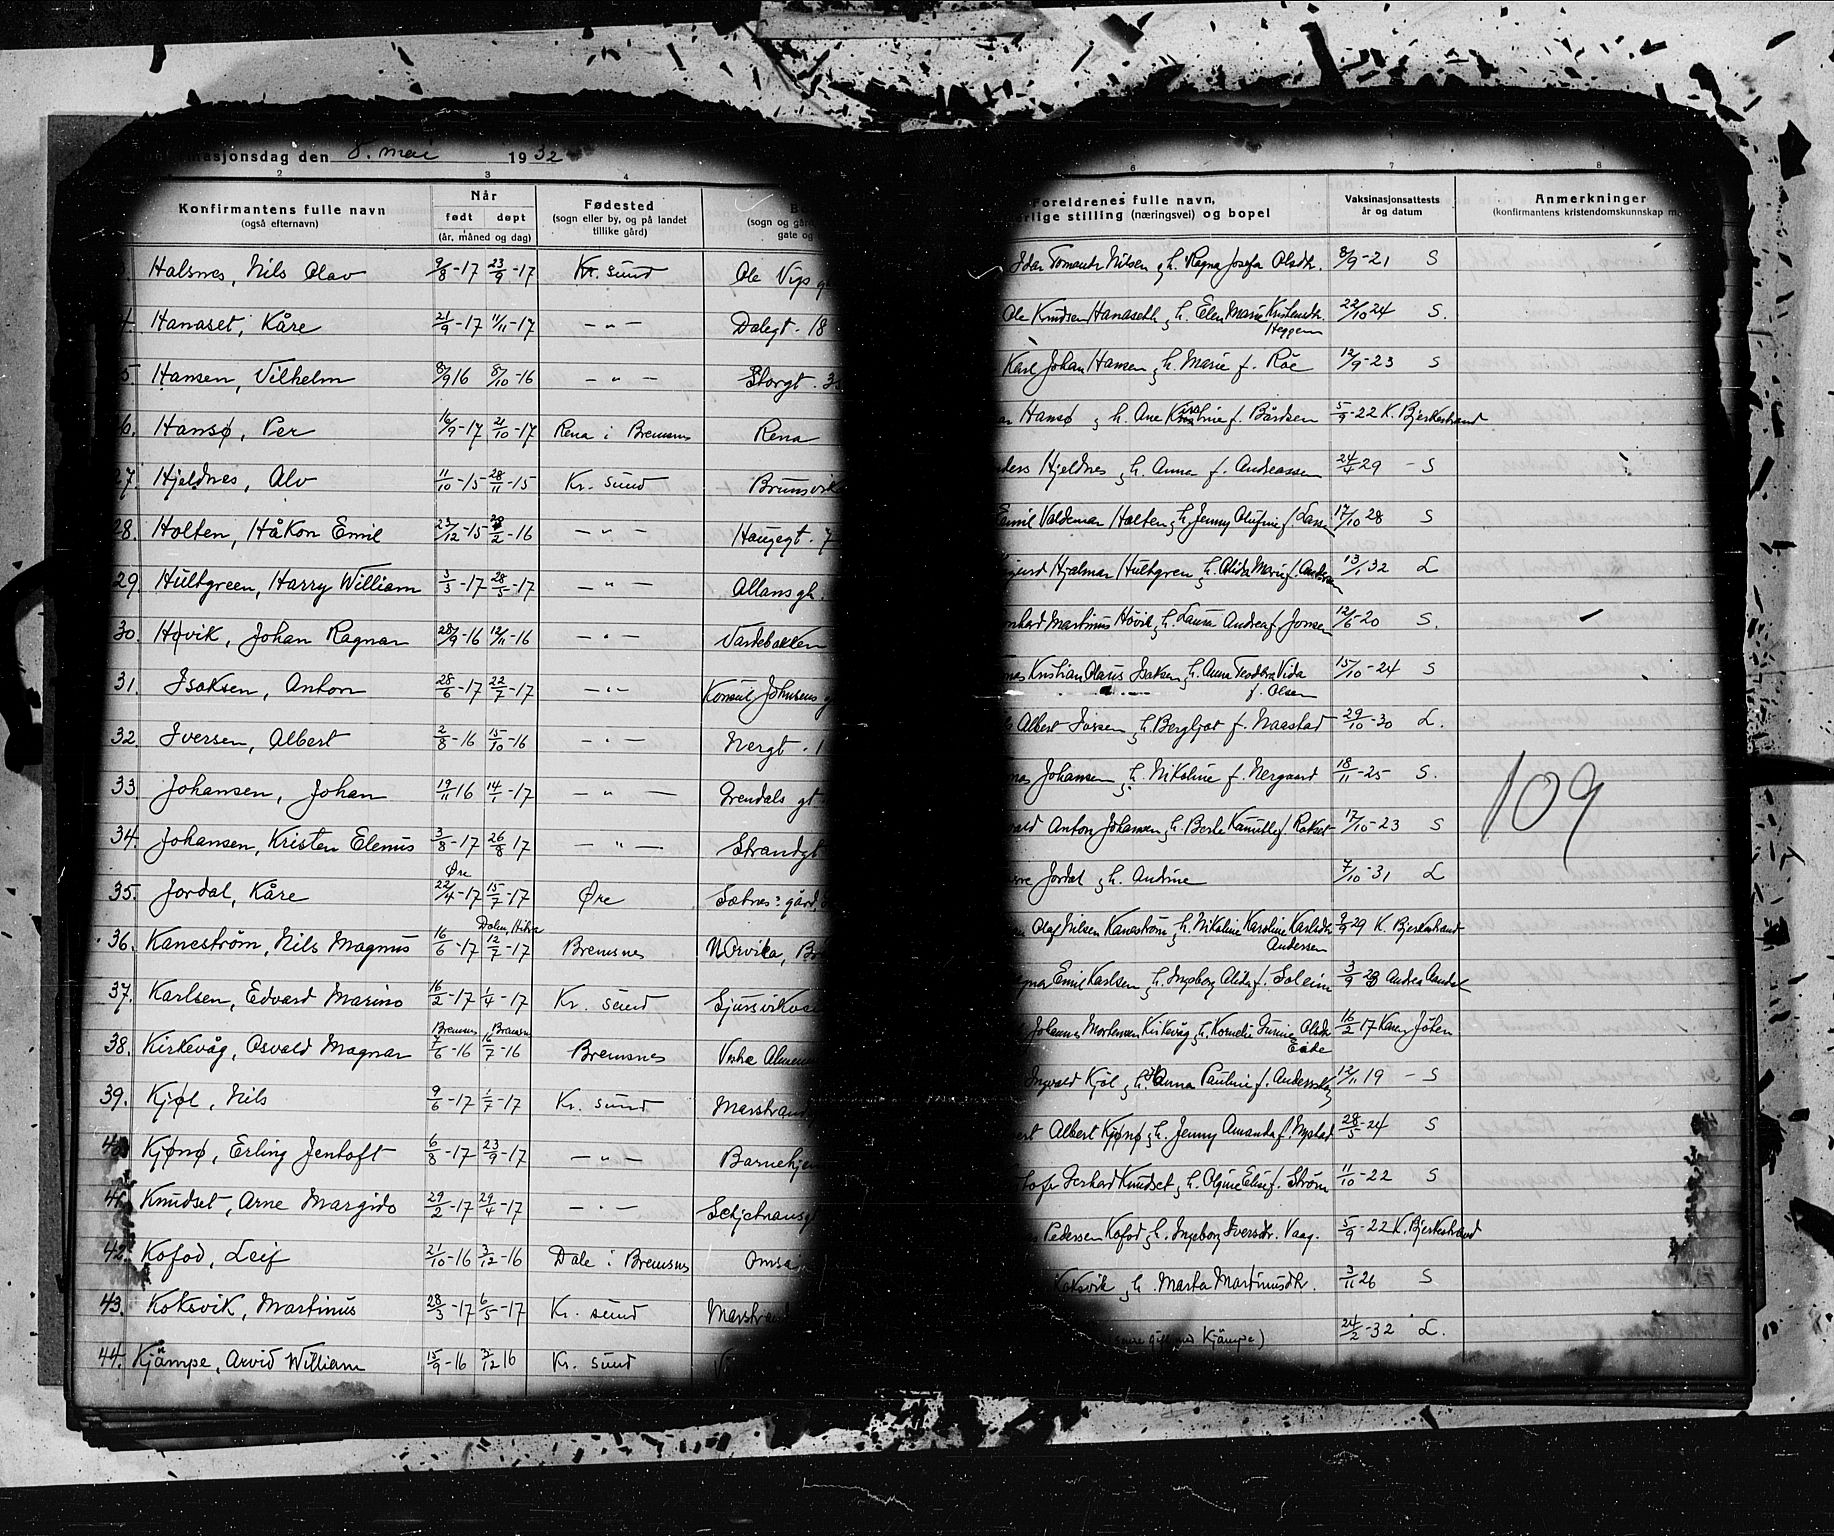 masjonsdag den 8. mai 1932
2 3 4 6 7 8
Konfirmantens fulle navn
(også efternavn)
Når
født døpt
(år, måned og dag)
Fødested
(sogn eller by, og på landet
tillike gård)
(sogn og går
gate og
Foreldrenes fulle navn,
rlige stilling (næringsvei) og bopel
Vaksinasjonsattests
år og datum
Anmerkninger
(konfirmantens kristendomskunnskap m.
Halsnes, Nils Olav 9/8-17 23/9-17 Kr. sund Ole Vigs g Nilsen g h. Ragna Josefa Olsdtr. 8/9-21 S
Hanaset, Kåre 21/9-17 11/11-17 - " - Dalegt. 18 Ole Knudsen Hanaseth g h. Elen Marie Kristensdtr. Heggem 22/10 24 S.
5 Hansen, Vilhelm 8/9 16 8/10-16 - " - Storgt. 3 Karl Johan Hansen g h. Marie f. Röe 12/9-23 S
6. Hansø, Per 16/9-17 21/10-17 Rena i Bremsnes Rena Hansø g h. Ane f. Bårdsen 5/9-22 K. Bjerkestrand
27. Hjeldnes, Alv 11/10-15 28/11-15 Kr. sund Brunsvik ders Hjeldnes g h. Anna f. Andreassen 24/4 29 - S
28. Holten, Håkon Emil 23/12-15 2-16 - " - Haugegt. 7 Emil Valdemar Holten g h. Jenny Olufine f. Larsen 17/10 28 S
29. Hultgreen, Harry William 3/3-17 28/5-17 - " - Allansgt. Hjalmar Hultgren g h. Alida Marie f. Andersen 13/1 32 L
30. Høvik, Johan Ragnar 28/9-16 12/11-16 - " - Vardebakken Martinus Høvik g h. Laura Andrea f. Jonsen 12/6-20 S.
31. Isaksen, Anton 28/6-17 22/7-17 - " - Konsul Johnsens g Kristian Olaus Isaksen g h. Anna Teodora Vida f. Olsen 15/10-24 S
32. Iversen, Albert 2/8-16 15/10-16 - " - Nergt. 1 Albert Iversen g h. Bergljot f. Naastad 29/10-30 L.
33 Johansen, Johan 19/11 16 14/1-17 - " - Grendals gt. Johansen g h. Nikoline f. Nergaard 18/11-25 S.
34. Johansen, Kristen Elenus 3/8-17 26/8 17 - " - Strandgt vald Anton Johansen g h. Berte Kamilla f. Rokset 17/10-23 S
109
35. Jordal, Kåre Øre 22/4-17 15/7-17 Øre Sætnes gård, Jordal g h. Andrine 7/10-31 L
36. Kaneström, Nils Magnus 16/6-17 Dalen, Hitra 12/7-17 Bremsnes N Orvika, B Olaf Nilsen Kaneström g h. Nikoline Karoline Karlsdtr Andersen 9/9 29 K. Bjerkestrand
37. Karlsen, Edvard Marino 16/2-17 1/4-17 Kr. sund Sjursvikvei Emil Karlsen g h. Ingeborg Alida f. Soleim 3/9 23 Andrea Sandøl
38. Kirkevåg, Osvald Magnar Bremsnes 7/6-16 Bremsnes 16/7-16 Bremsnes Vestre Almenn Johannes Mortensen Kirkevåg g h. Kornelie Olsdtr Eide 16/2 17 Karen Johsen
39. Kjøl, Nils 9/6-17 1/7-17 Kr. sund Marstrand Ingvald Kjøl g h. Anna Pauline f. 12/11 19 - S
40. Kjønø, Erling Jentoft 6/8-17 23/9-17 - " - Barnehje Albert Kjønø g h. Jenny Amanda f. Nystad 28/5-24 S
41. Knudset, Arne Margido 29/2-17 29/4-17 - " - Schjetnansg Gerhard Knudset g h. Olgine Elise f. Strøm 11/10-22 S
42. Kofod, Leif 21/10-16 3/12-16 Dale i Bremsnes Omsa Pedersen Kofod g h. Ingeborg Iversdr. Vaag. 5/9-22 K. Bjerkestrand
43. Koksvik, Martinus 28/3-17 6/5-17 Kr. sund Marstrand Koksvik g h. Marta Martinusdtr. 3/11 26 S
44. Kjämpe, Arvid William 15/9-16 3/12 16 Kr. sund gift med Kjämpe) 24/2-32 L.